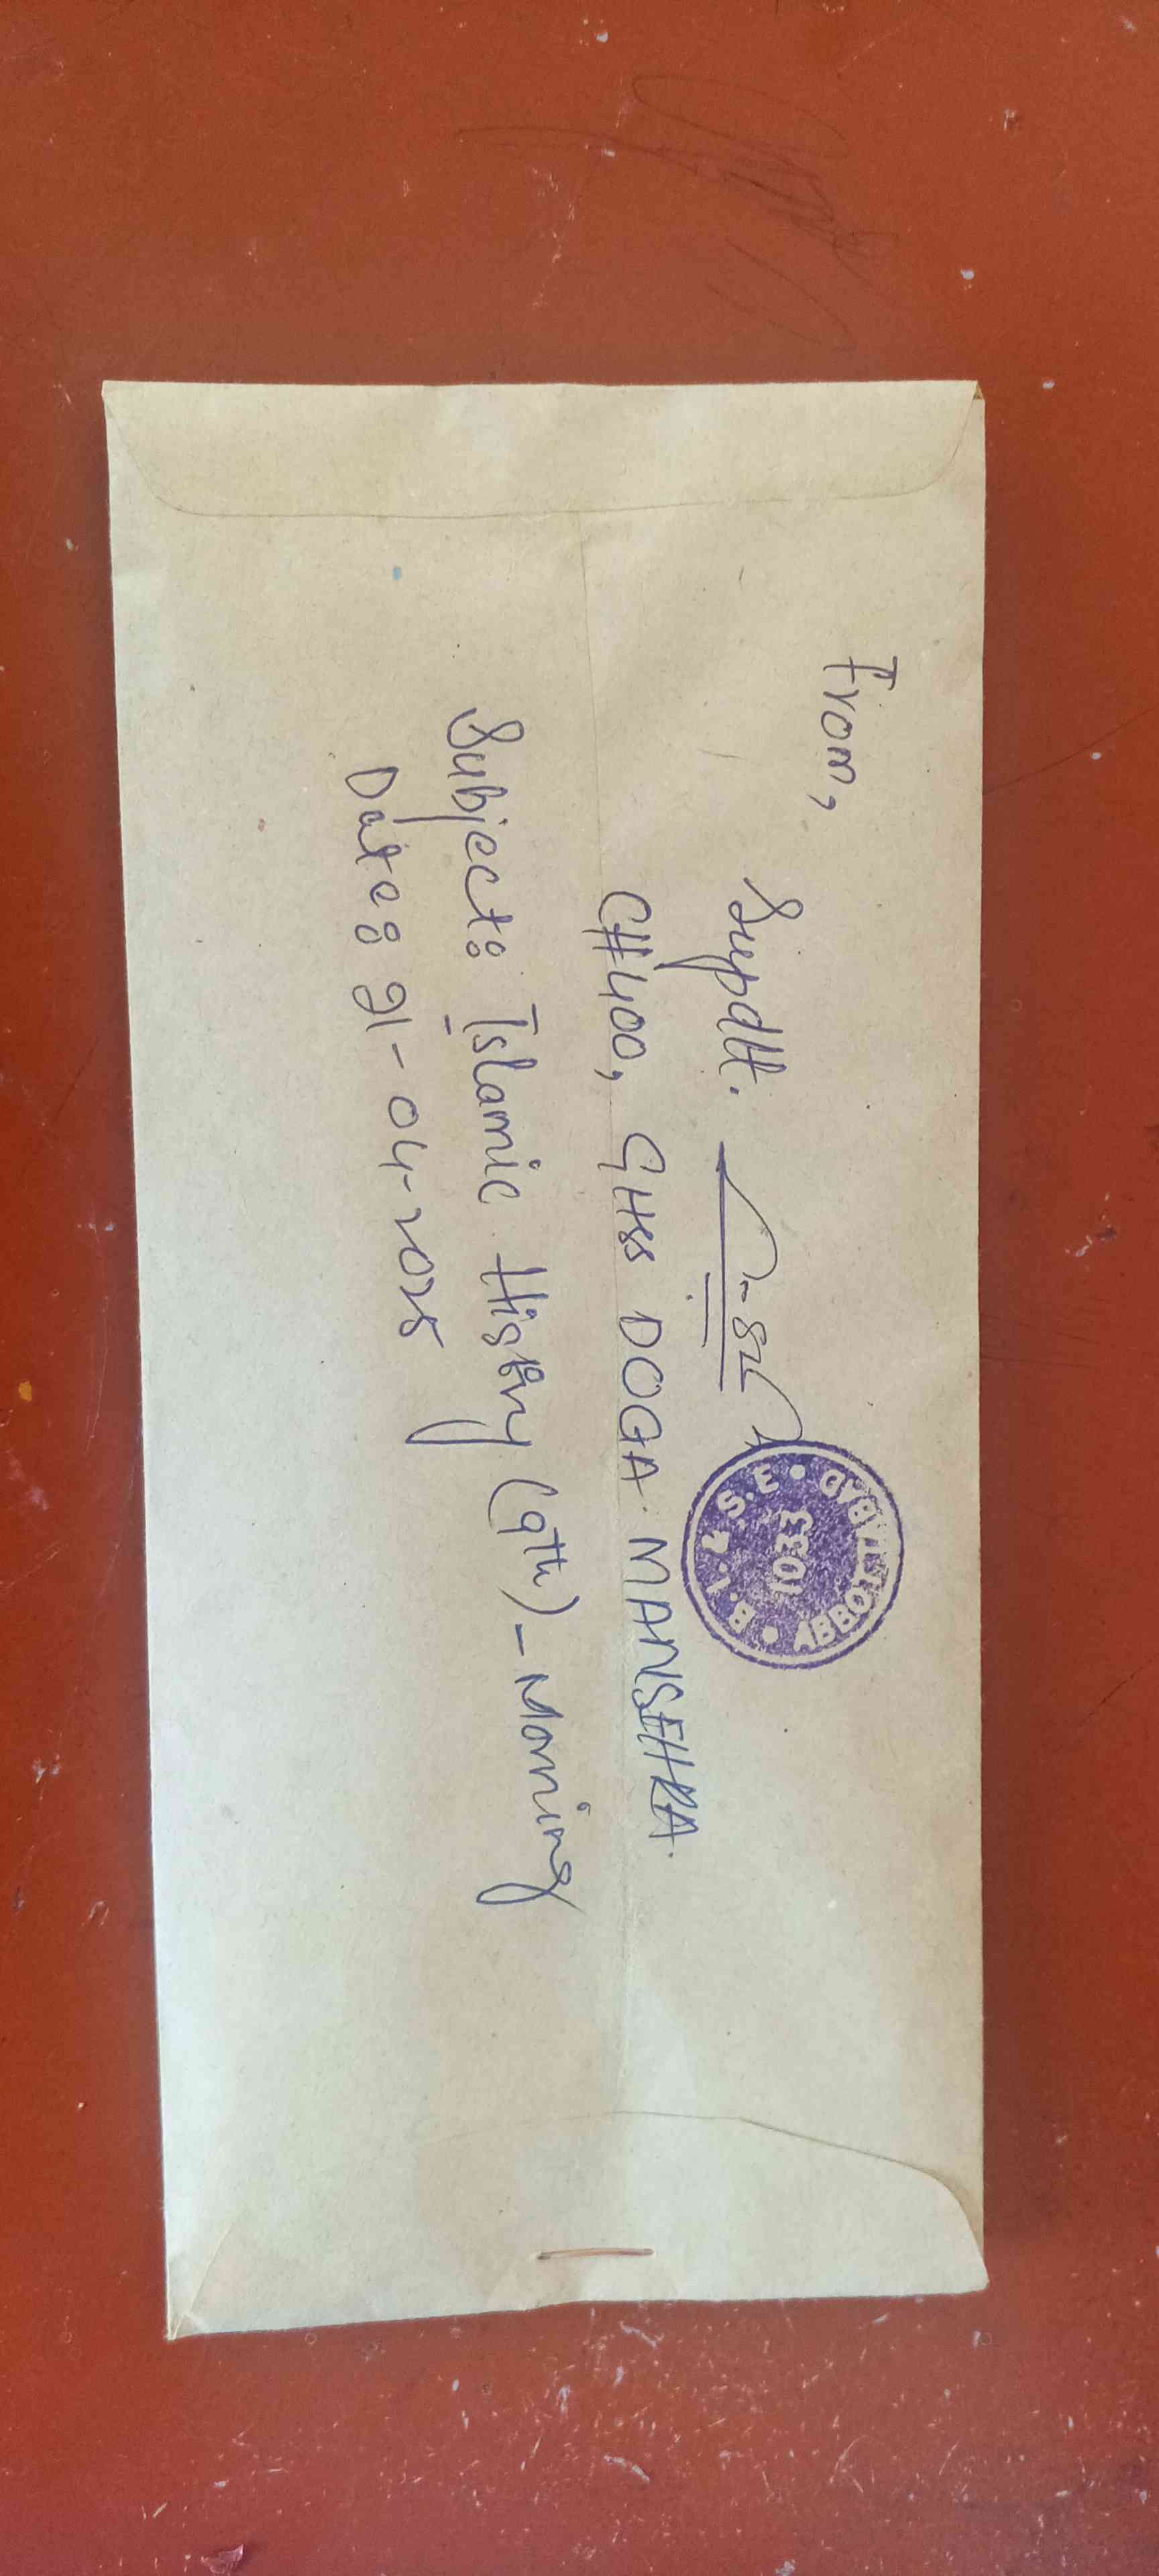 From,
Supdtt.
B.I.&S.E • ABBOTTABAD •
1033
C#400, GHSS DOGA MANSEHRA.
Subject: Islamic History (9th) - Morning
Date: 21-04-2025